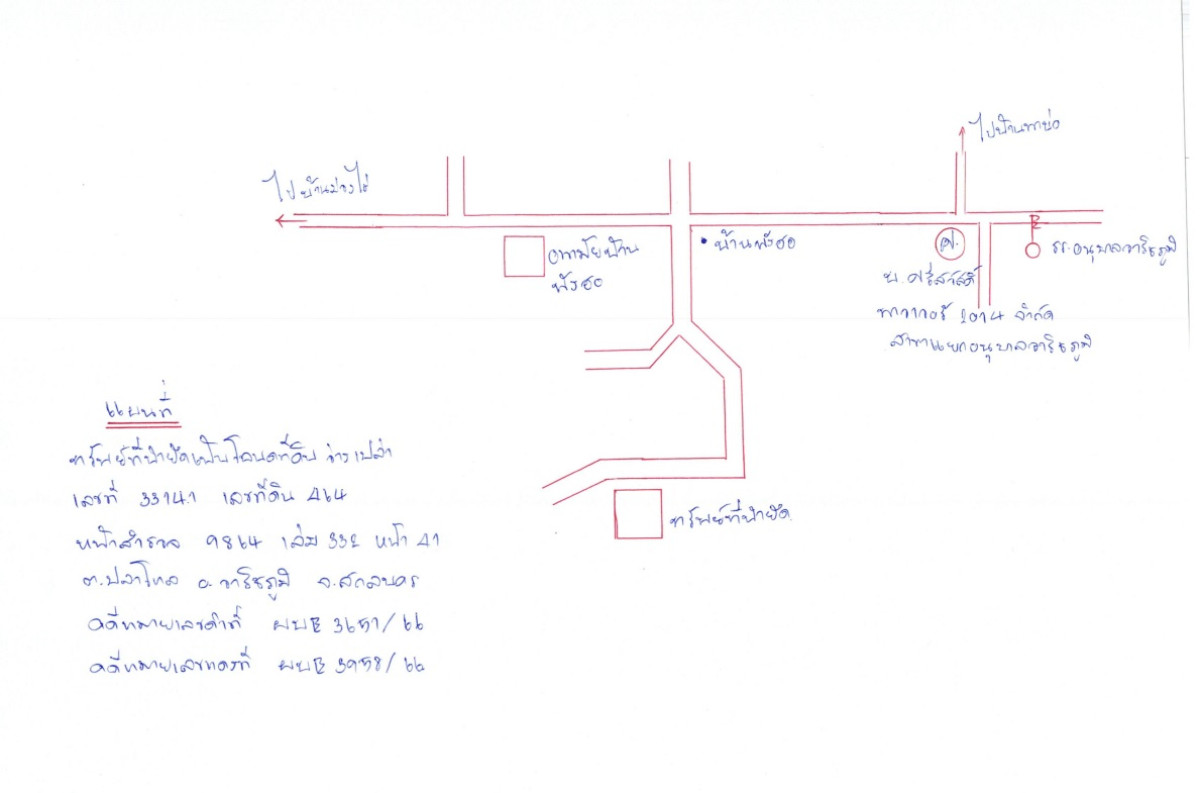 ไปบ้านทาบ่อ
ไปบ้านม่วงไข่
อนามัยบ้าน
ผังฮอ
บ้านผังฮอ
ศ.
บ. ศรีสวัสดิ์
พาวเวอร์ 2014 จำกัด
สาขาแยกอนุบาลวาริชภูมิ
รร.อนุบาลวาริชภูมิ
แผนที่
ทรัพย์ที่นำยึดเป็นโฉนดที่ดิน ว่างเปล่า
เลขที่ 33141 เลขที่ดิน 464
หน้าสำรวจ 9864 เล่ม 332 หน้า 41
ต.ปลาโหล อ.วาริชภูมิ จ.สกลนคร
คดีหมายเลขดำที่ ผบE 3651/66
คดีหมายเลขแดงที่ ผบE 3958/66
ทรัพย์ที่นำยึด